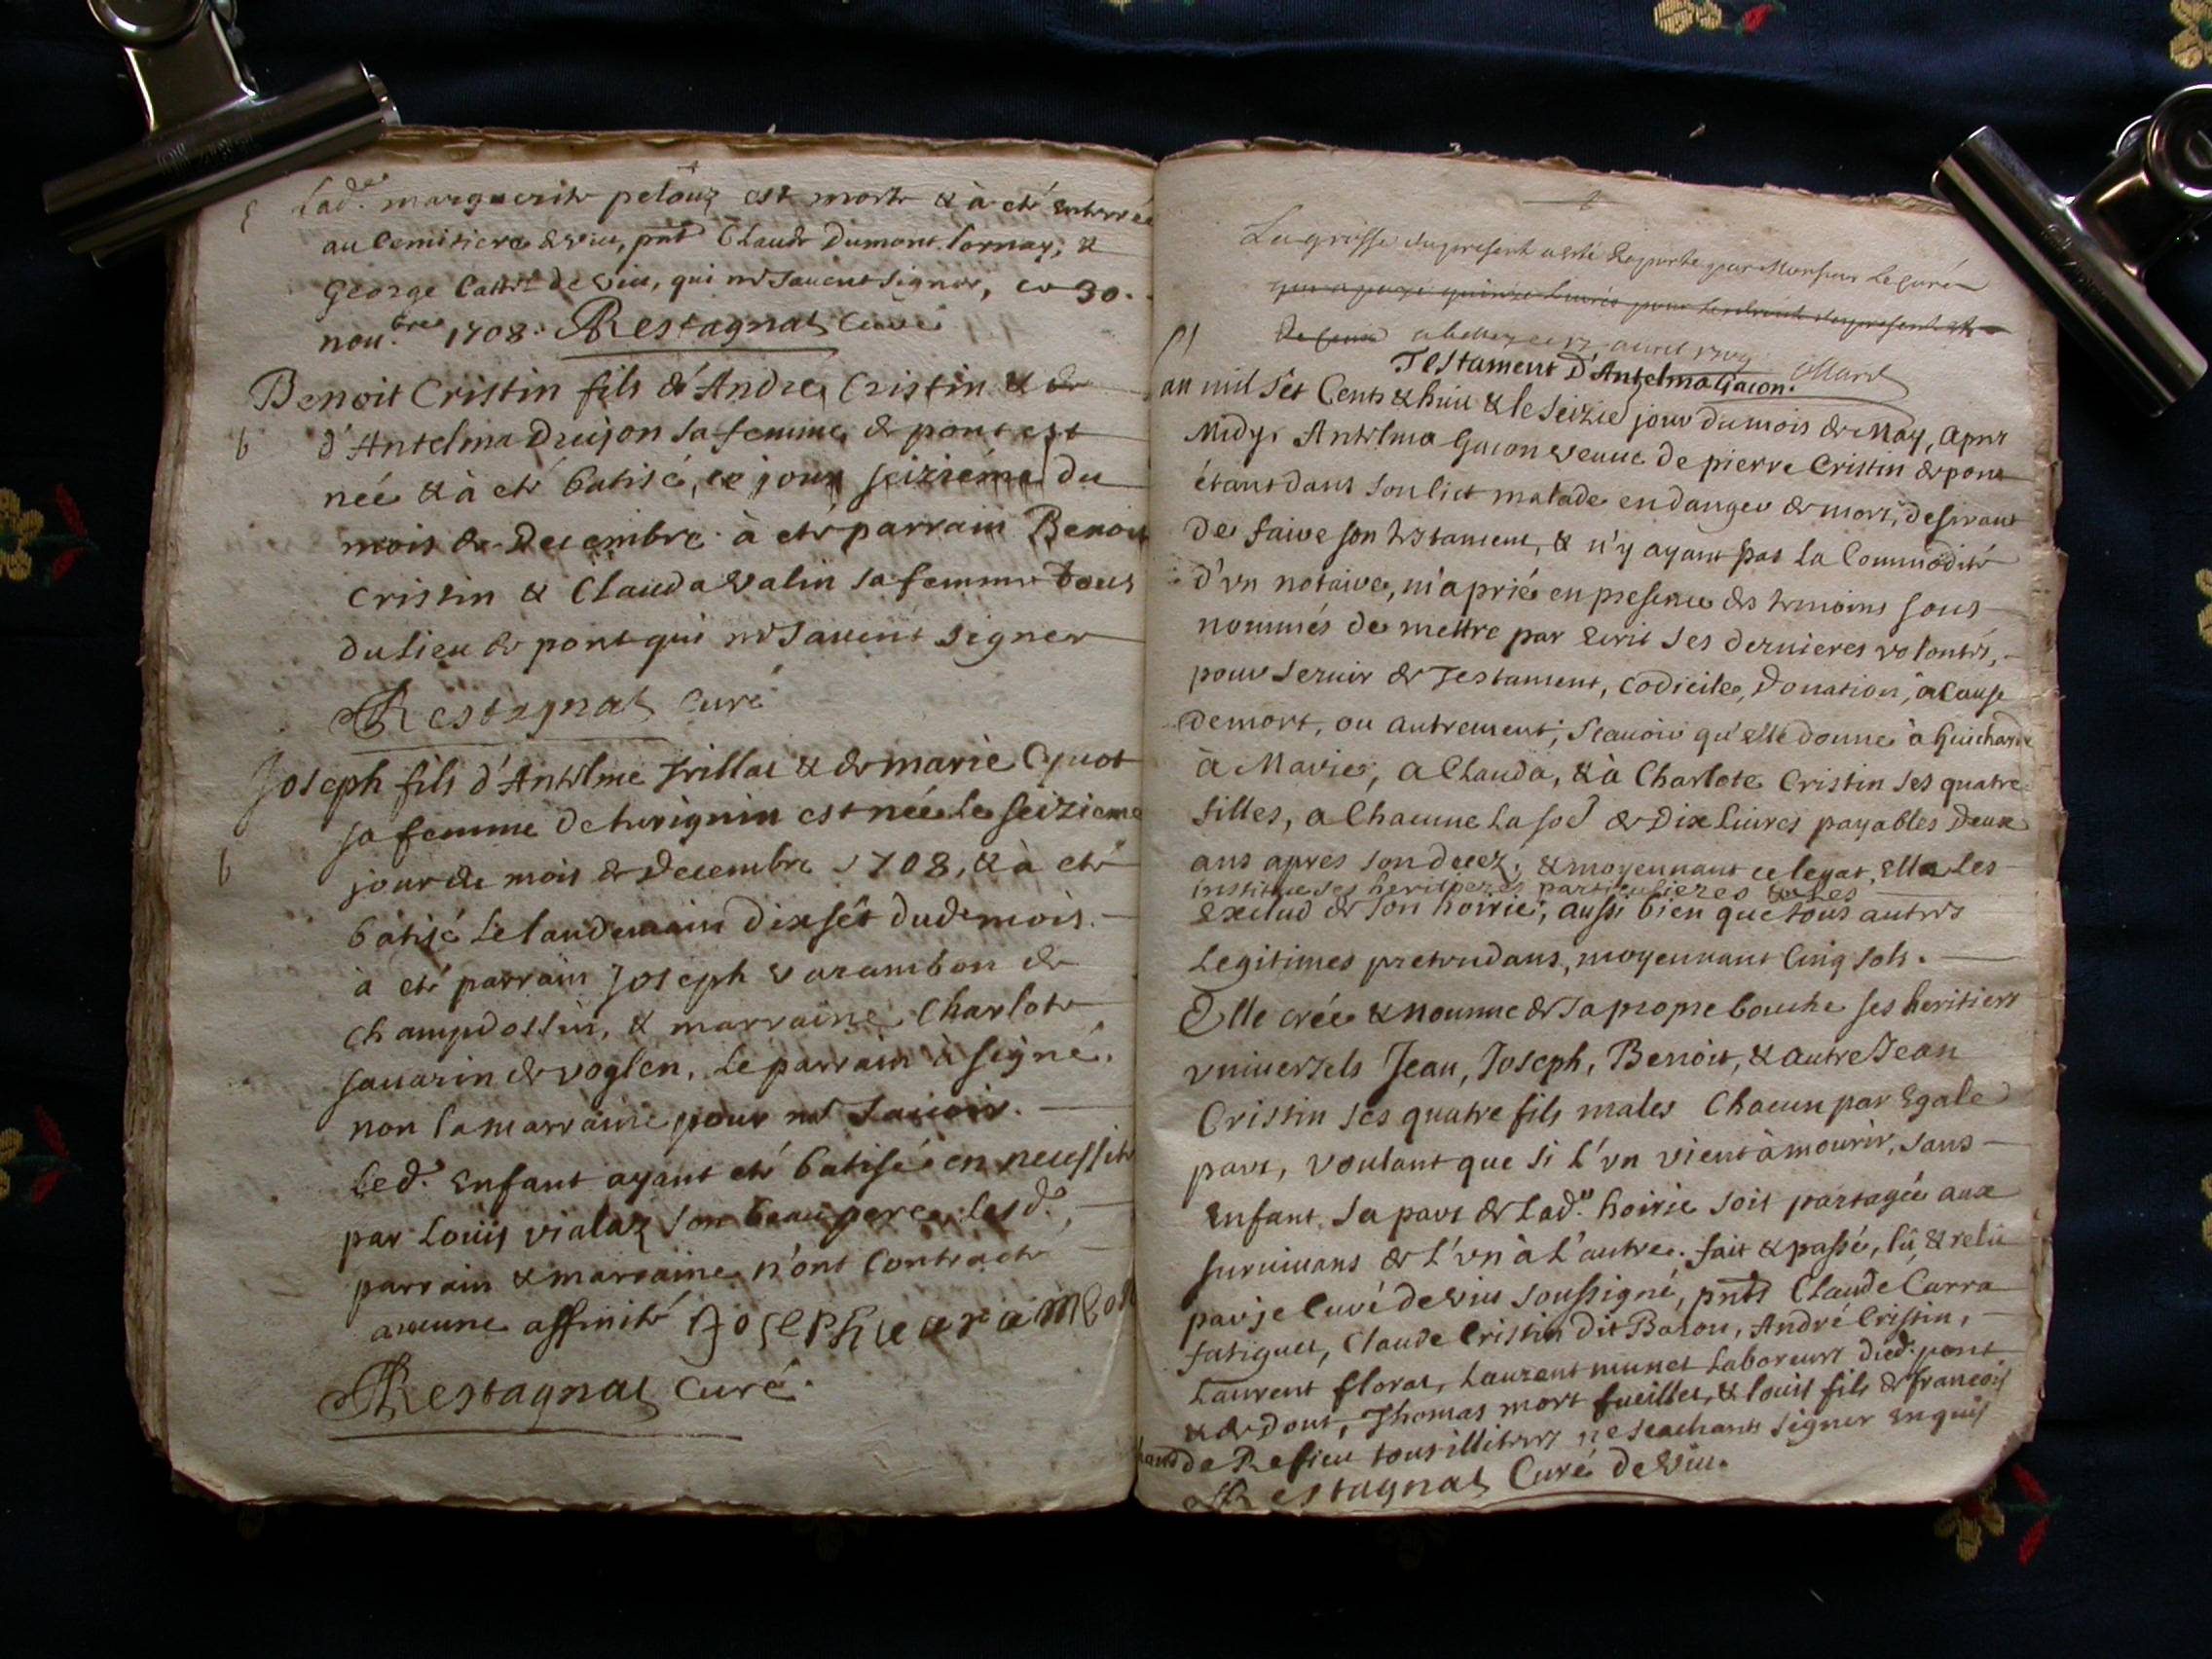 Lad.e marguerite peloux est morte & à eté enterrée
au Cemitiere de viu, pnts Claude Dumont Cornay, &
George de viu, qui ne sauent signer, ce 30.
nou.bre 1708. Restagnat Curé
Benoit Cristin fils d'André Cristin & de
d'Antelma Drujon sa femme de pont est
née & à eté batisé, ce jour seiziéme du
mois de Decembre à eté parrain Benoit
Cristin & Clauda valin sa femme tous
du lieu de pont qui ne sauent signer
Restagnat Curé
Joseph fils d'Antelme Trillat & de marie Cyuot
sa femme de turignin est née le seizieme
jour du mois de Decembre 1708, & à eté
batisé le landemain dix sêt dud. mois.
à eté parrain Joseph varambon de
champdossin, & marraine Charlote
sauarin de voglen, le parrain à signé,
non la marraine pour ne sauoir.
Led. Enfant ayant eté batisé en necessité
par Louis vialaz son beau pere, lesd.
parrain & marraine n'ont Contracté
aucune affinité Joseph uarambon
Restagnat Curé.
La grosse du present a esté Exporté par Monsieur Le Curé
qui a payé quinze Liures pour du present
Testament D'Antelma Gacon.
an mil sêt Cents & huit & le seizie jour du mois de May, apres
Midy, Antelma Gacon veuue de pierre Cristin de pont
étant dans son lict malade en danger de mort, desirant
de faire son testament, & n'y ayant pas la Commodité
d'vn notaire, m'a prié en presence des temoins sous
nommés de mettre par Ecrit ses dernieres volontés,
pour seruir de Testament, codicile, Donation, à cause
de mort, ou autrement; scauoir qu'elle donne à Guicharde
à Marie, a Clauda, & à Charlote Cristin ses quatre
filles, a Chacune la soe de Dix Liures payables Deux
ans apres son decez, & moyennant ce legat, Elle Les
institue ses heritieres particulieres & les
Exclud de son hoirie, aussi bien que tous autres
Legitimes pretendans, moyennant Cinq sols.
Elle crée & nomme de sa propre bouche ses heritiers
vniuersels Jean, Joseph, Benoit, & autre Jean
Cristin ses quatre fils males Chacun par Egale
part, voulant que si l'vn vient à mourir, sans
Enfant, sa part de lad.e hoirie soit partagée aux
suruiuans de l'vn à l'autre. fait & passé, lû & relû
par je Curé de viu soussigné, pnts Claude Carra
fatiguet, Claude Cristin dit Baron, André Cristin,
Laurent florat, Laurent munet Laboreurs dud. pont
& de Dont, Thomas mort fueillet, & louis fils de francois
de Refieu tous illiteres ne scachants signer Enquis
Restagnat Curé de viu.